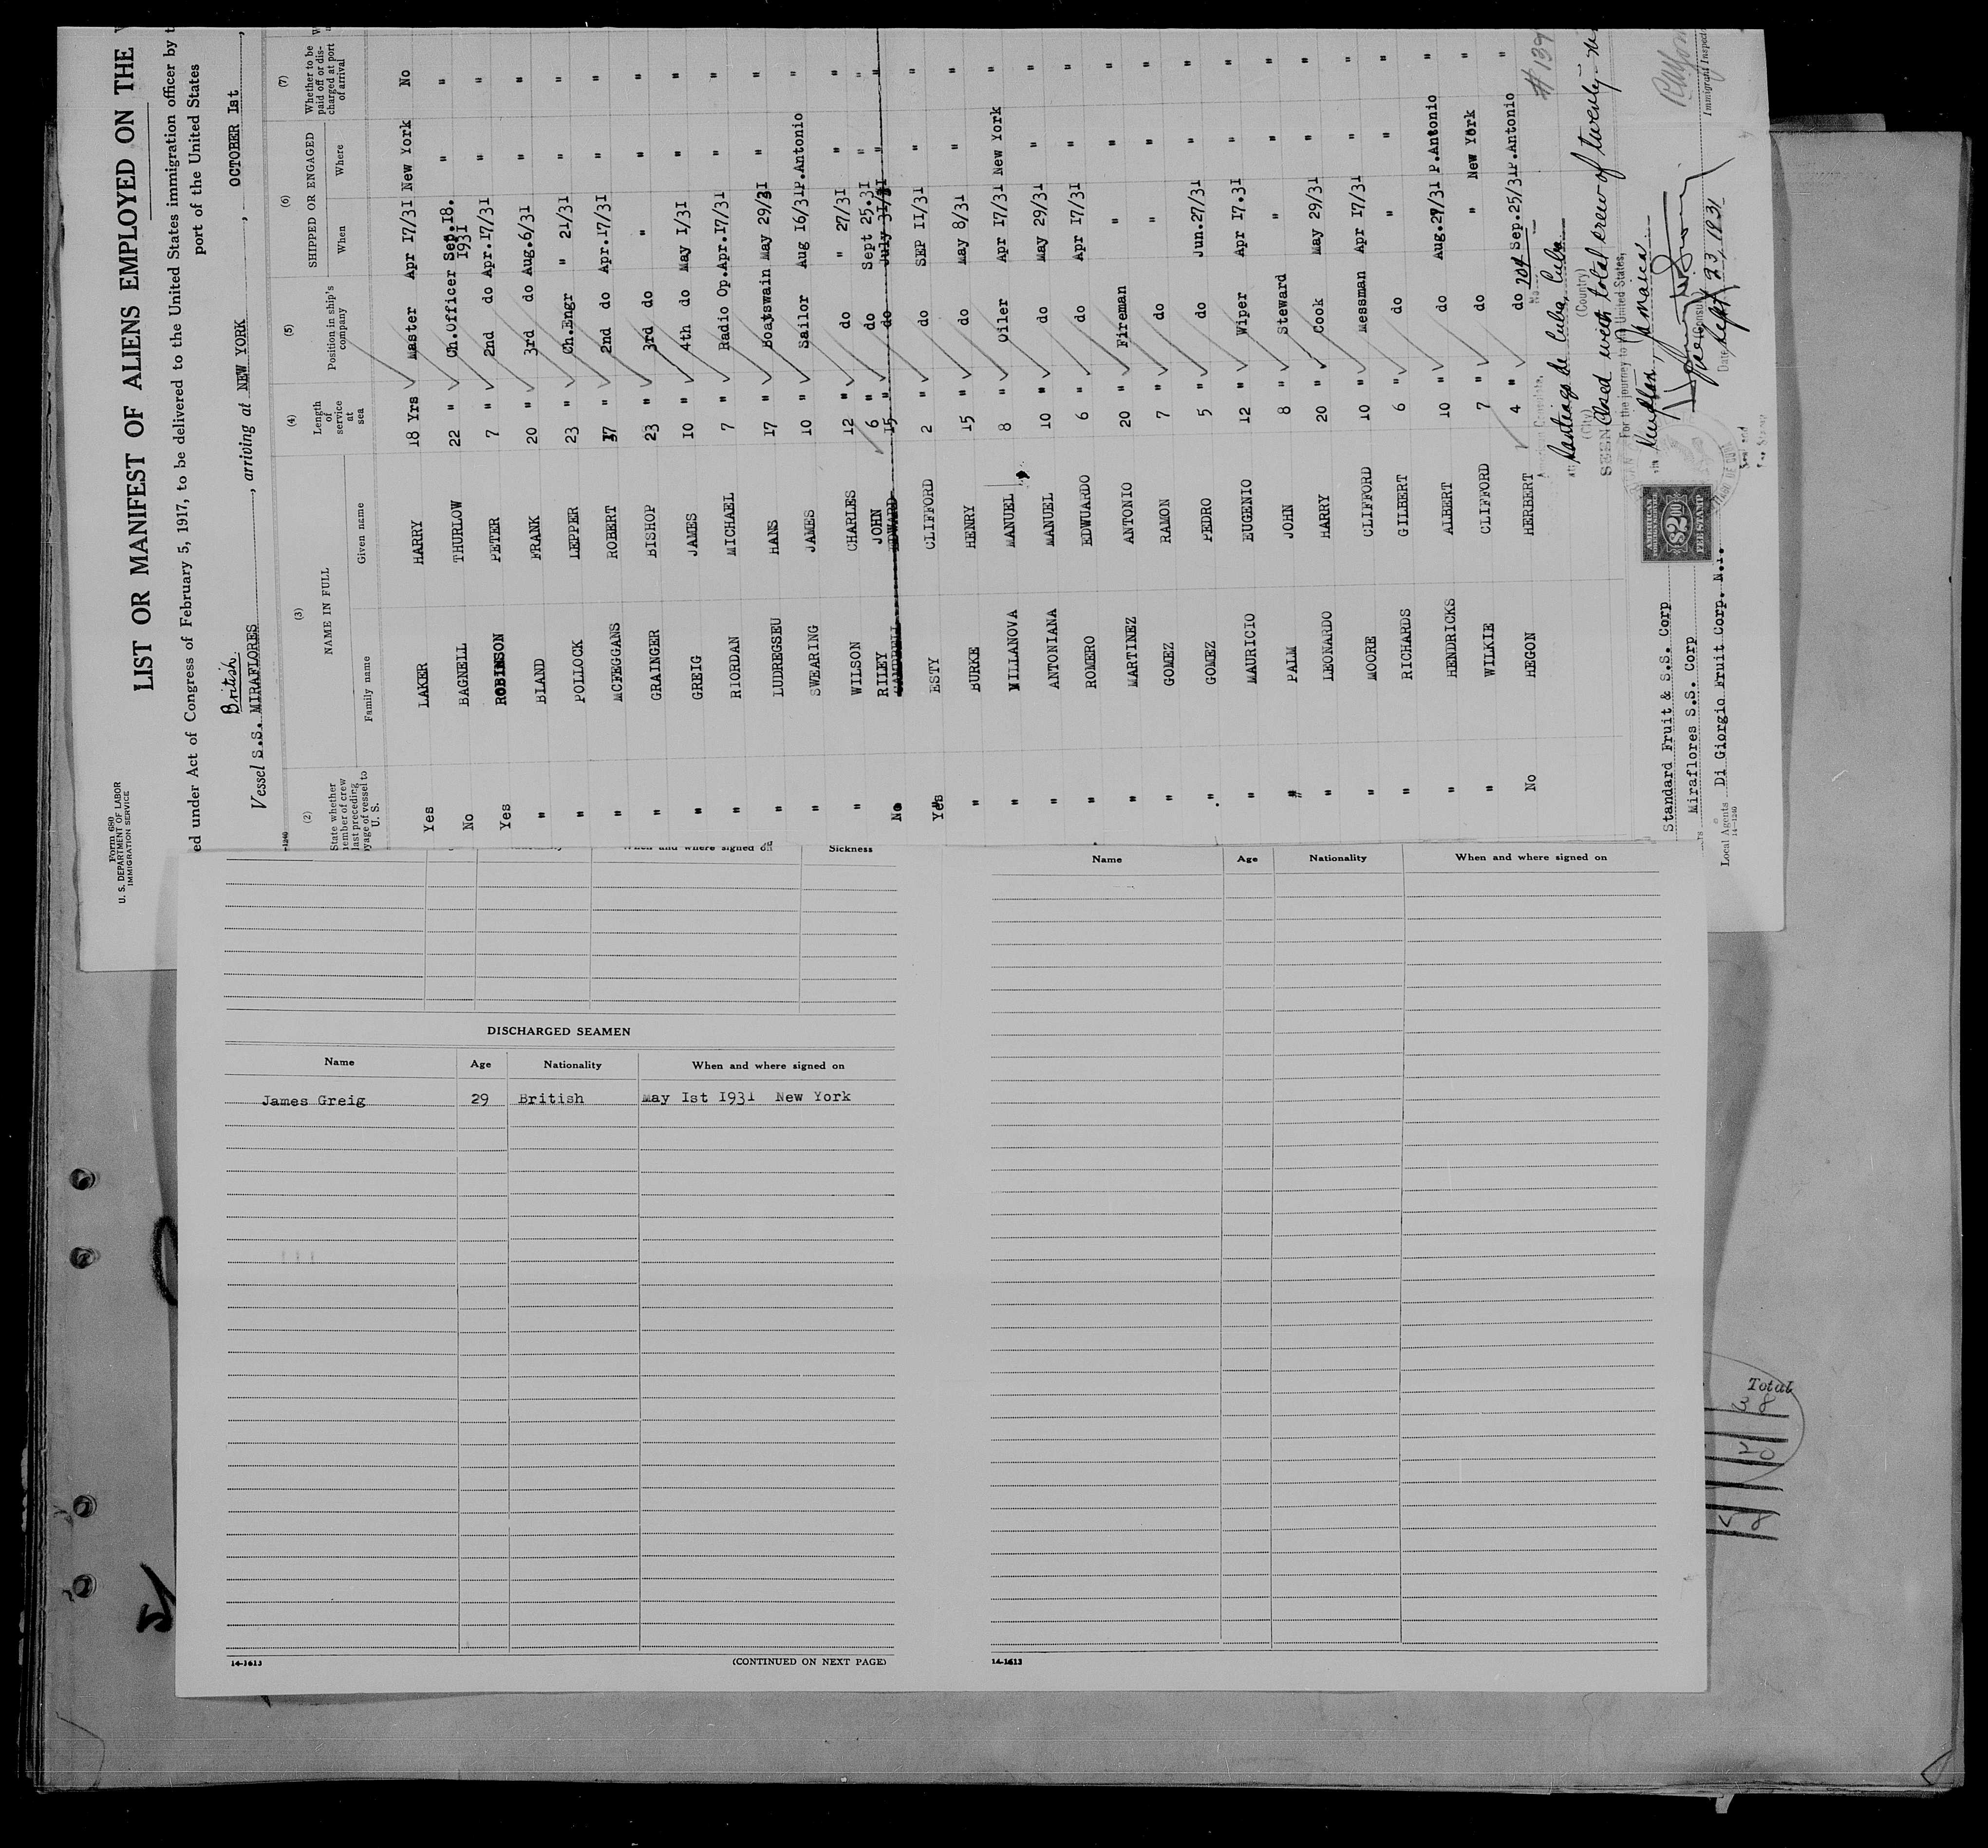 Form 680
U. S. DEPARTMENT OF LABOR
IMMIGRATION SERVICE
LIST OR MANIFEST OF ALIENS EMPLOYED ON THE
ed under Act of Congress of February 5, 1917, to be delivered to the United States immigration officer by t
port of the United States
British
Vessel S.S. MIRAFLORES, arriving at NEW YORK, OCTOBER Ist,
(2) (3) (4) (5) (6) (7)
State whether member of crew last preceding voyage of vessel to U. S.
NAME IN FULL
Family name Given name
Length of service at sea
Position in ship's company
SHIPPED OR ENGAGED
When Where
Whether to be paid off or discharged at port of arrival
Yes LAKER HARRY 18 Yrs Master Apr 17/31 New York No
No BAGNELL THURLOW 22 " Ch.Officer Sep.18. 1931 " "
Yes ROBINSON PETER 7 " 2nd do Apr.17/31 " "
" BLAND FRANK 20 " 3rd do Aug.6/31 " "
" POLLOCK LEPPER 23 " Ch.Engr " 21/31 " "
" MCFEGGANS ROBERT 37 " 2nd do Apr.17/31 " "
" GRAINGER BISHOP 23 " 3rd do " " "
" GREIG JAMES 10 " 4th do May 1/31 " "
" RIORDAN MICHAEL 7 " Radio Op. Apr.17/31 " "
" LUDREGSEU HANS 17 " Boatswain May 29/31 " "
" SWEARING JAMES 10 " Sailor Aug 16/31 P.Antonio "
" WILSON CHARLES 12 " do " 27/31 " "
No RILEY JOHN 6 " do Sept 25.31 " "
EDWARD 15 " do July 31/31 " "
Yes ESTY CLIFFORD 2 " do SEP 11/31 " "
" BURKE HENRY 15 " do May 8/31 " "
" VILLANOVA MANUEL 8 " Oiler Apr 17/31 New York "
" ANTONIANA MANUEL 10 " do May 29/31 " "
" ROMERO EDWUARDO 6 " do Apr 17/31 " "
" MARTINEZ ANTONIO 20 " Fireman " " "
" GOMEZ RAMON 7 " do " " "
" GOMEZ PEDRO 5 " do Jun.27/31 " "
" MAURICIO EUGENIO 12 " Wiper Apr 17.31 " "
" PALM JOHN 8 " Steward " " "
" LEONARDO HARRY 20 " Cook May 29/31 " "
" MOORE CLIFFORD 10 " Messman Apr 17/31 " "
" RICHARDS GILBERT 6 " do " " "
" HENDRICKS ALBERT 10 " do Aug.27/31 P.Antonio "
" WILKIE CLIFFORD 7 " do " New York "
No HEGON HERBERT 4 " do Sep.25/31 P.Antonio "
#139
No. 204
American Consulate,
At Santiago de Cuba, Cuba
(City) (Country)
SEEN
closed with total crew of twenty-
For the journey to the United States,
via Kingston, Jamaica
Vice Consul
Date Sept. 23, 1931
Immigrant Inspector
AMERICAN
FOREIGN SERVICE
$2.00
FEE STAMP
Standard Fruit & S.S. Corp
Miraflores S.S. Corp
Local Agents Di Giorgio Fruit Corp. N.Y.
14-1240
When and where signed on Sickness
DISCHARGED SEAMEN
Name Age Nationality When and where signed on
James Greig 29 British May Ist I931 New York
14-1613 (CONTINUED ON NEXT PAGE)
Name Age Nationality When and where signed on
14-1613
Total